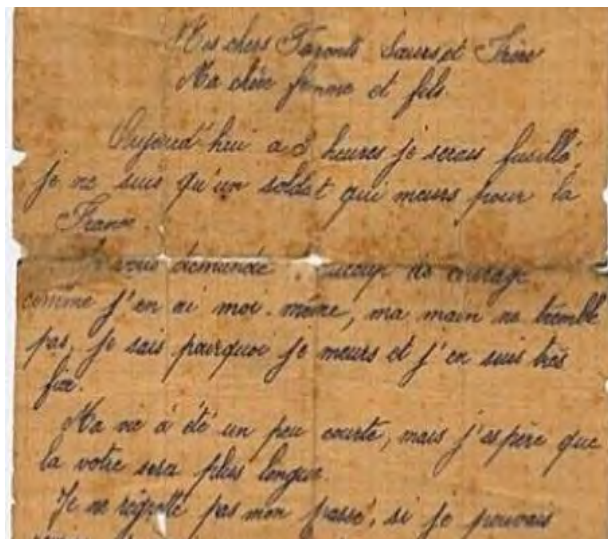 Mes chers Parents Sœurs et Frère
Ma chère femme et fils
Aujourd'hui a 3 heures je serais fusillé,
je ne suis qu'un soldat qui meurs pour la
France.
Je vous demande beaucoup de courage
comme j'en ai moi-même, ma main ne tremble
pas, je sais pourquoi je meurs et j'en suis très
fier.
Ma vie à été un peu courte, mais j'espère que
la votre sera plus longue.
Je ne regrette pas mon passé, si je pouvais